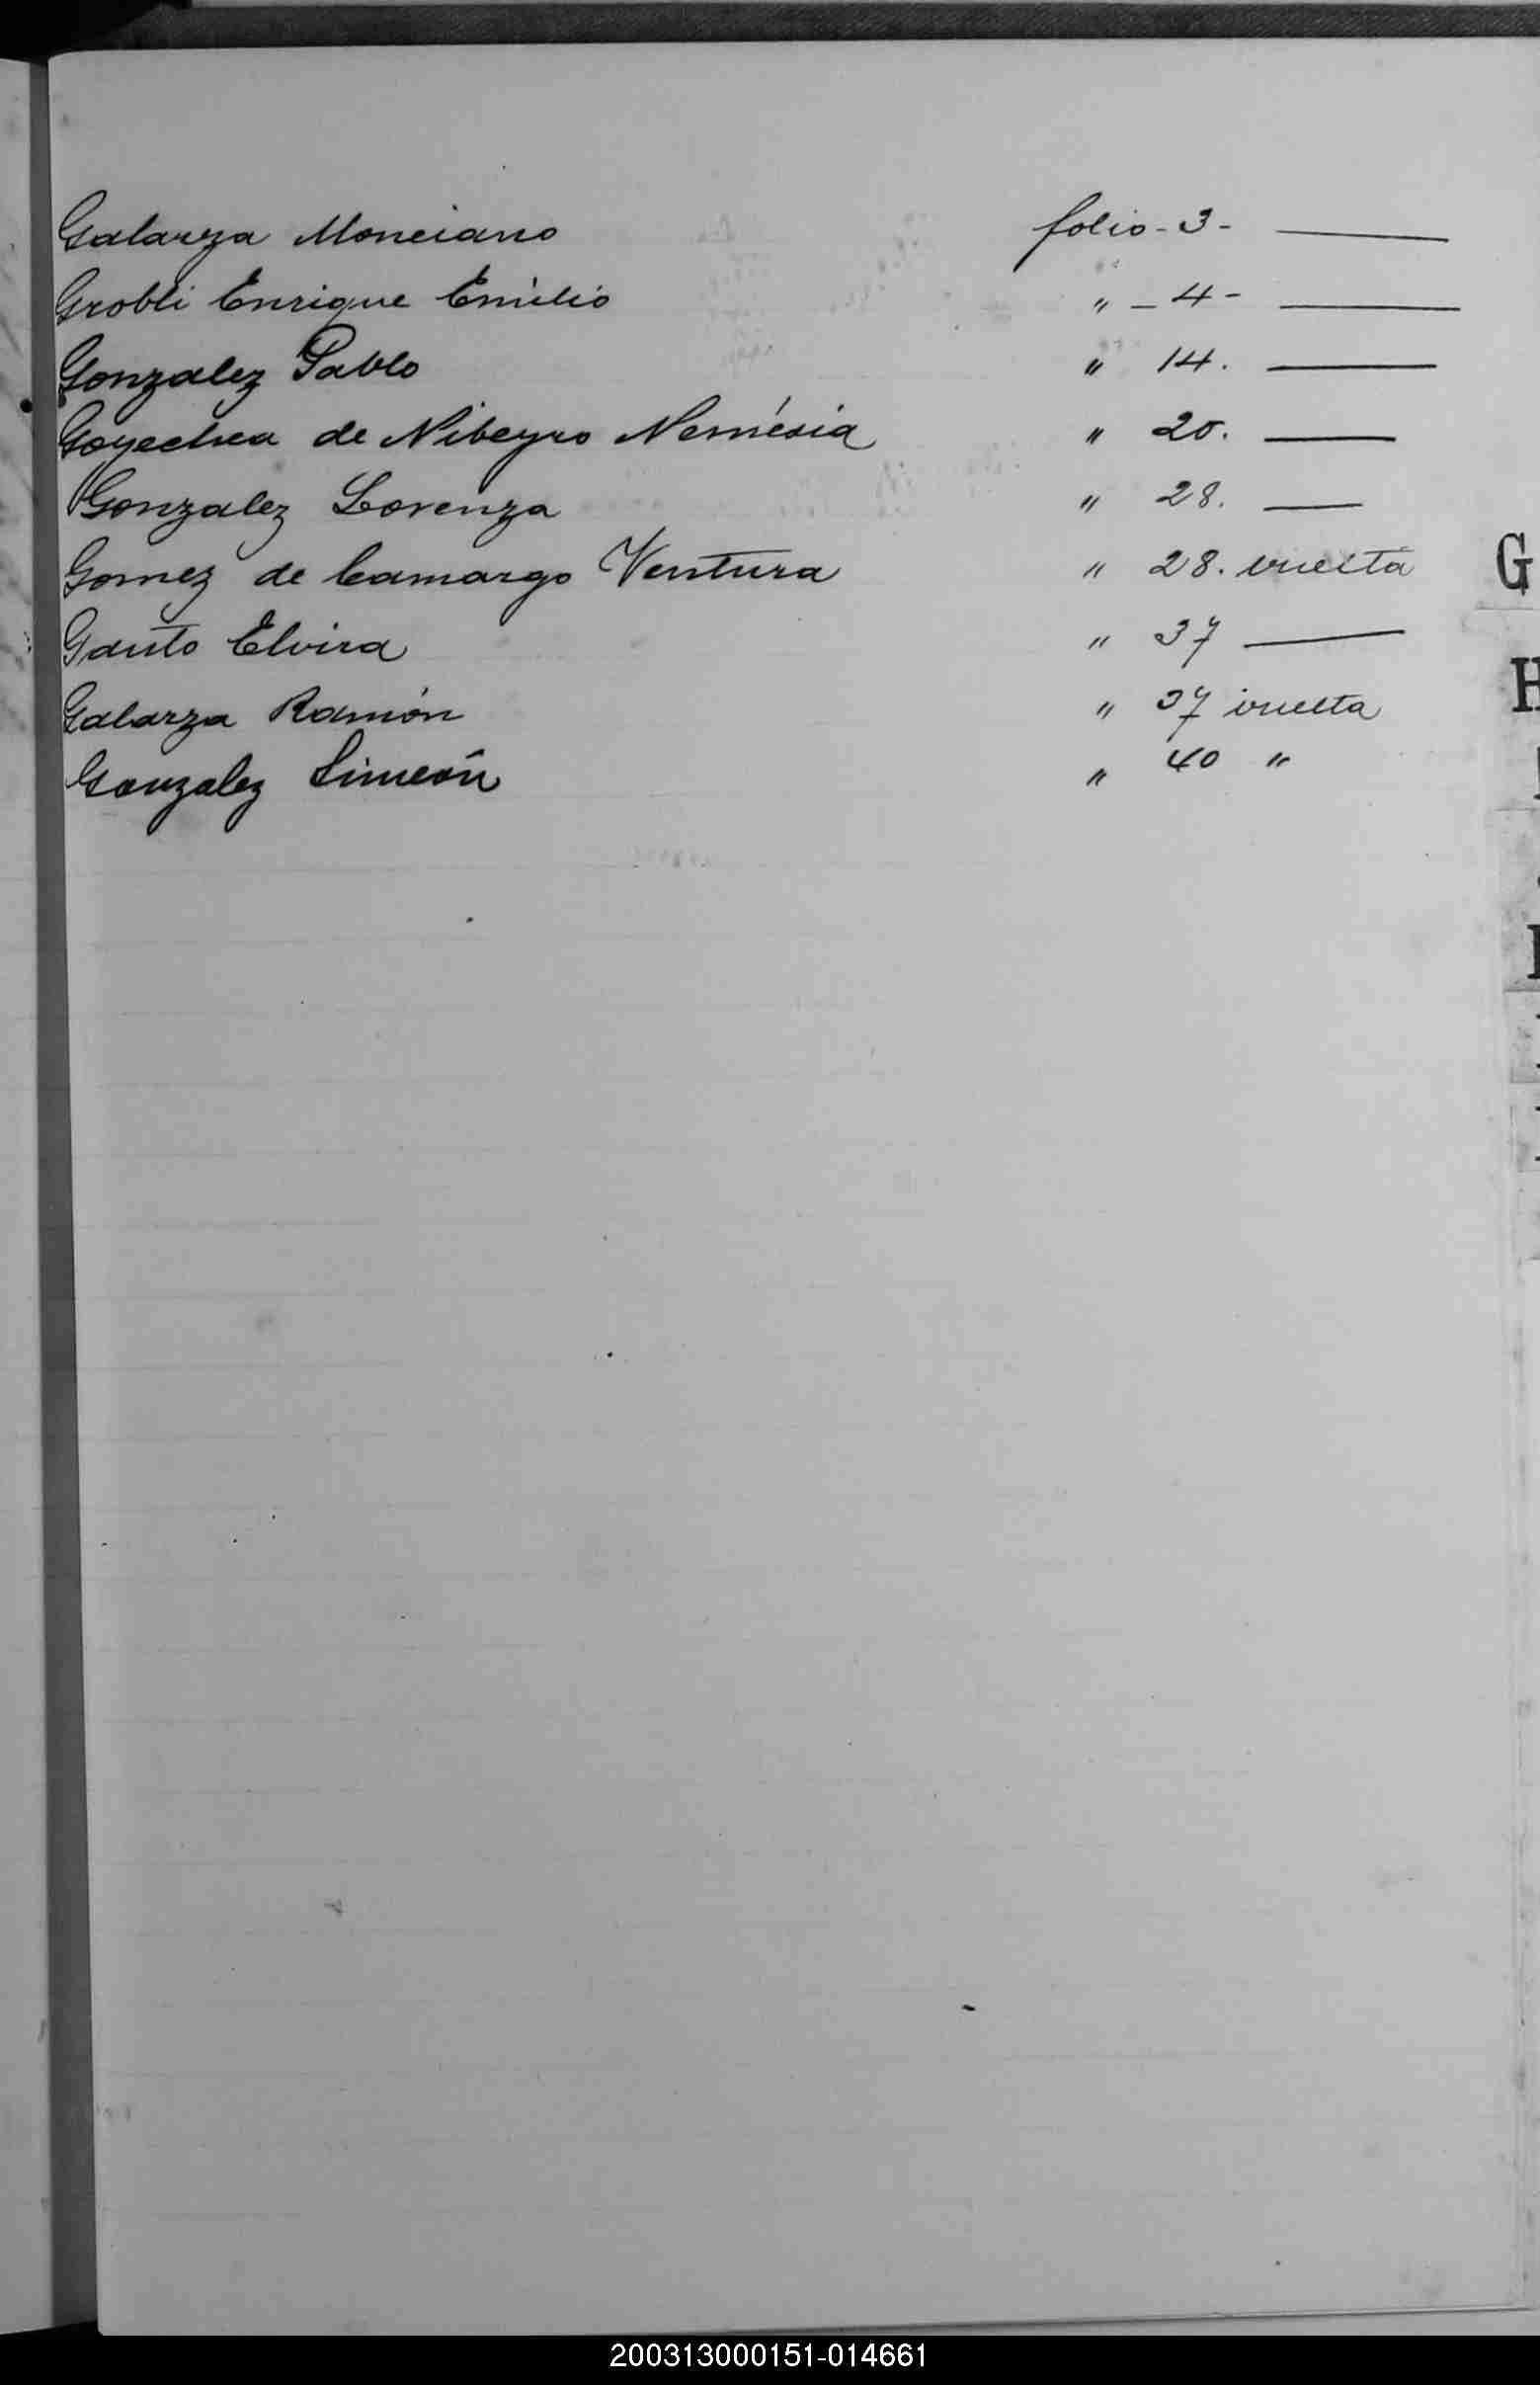 Galarza Monciano folio - 3 -
Grobli Enrique Emilio " - 4 -
Gonzalez Pablo " 14.
Goyechea de Nibeyro Nemésia " 20.
Gonzalez Lorenza " 28.
Gomez de Camargo Ventura " 28. vuelta
G
Gauto Elvira " 37
H
Galarza Ramón " 37 vuelta
Gonzalez Simeón " 40 "
200313000151-014661